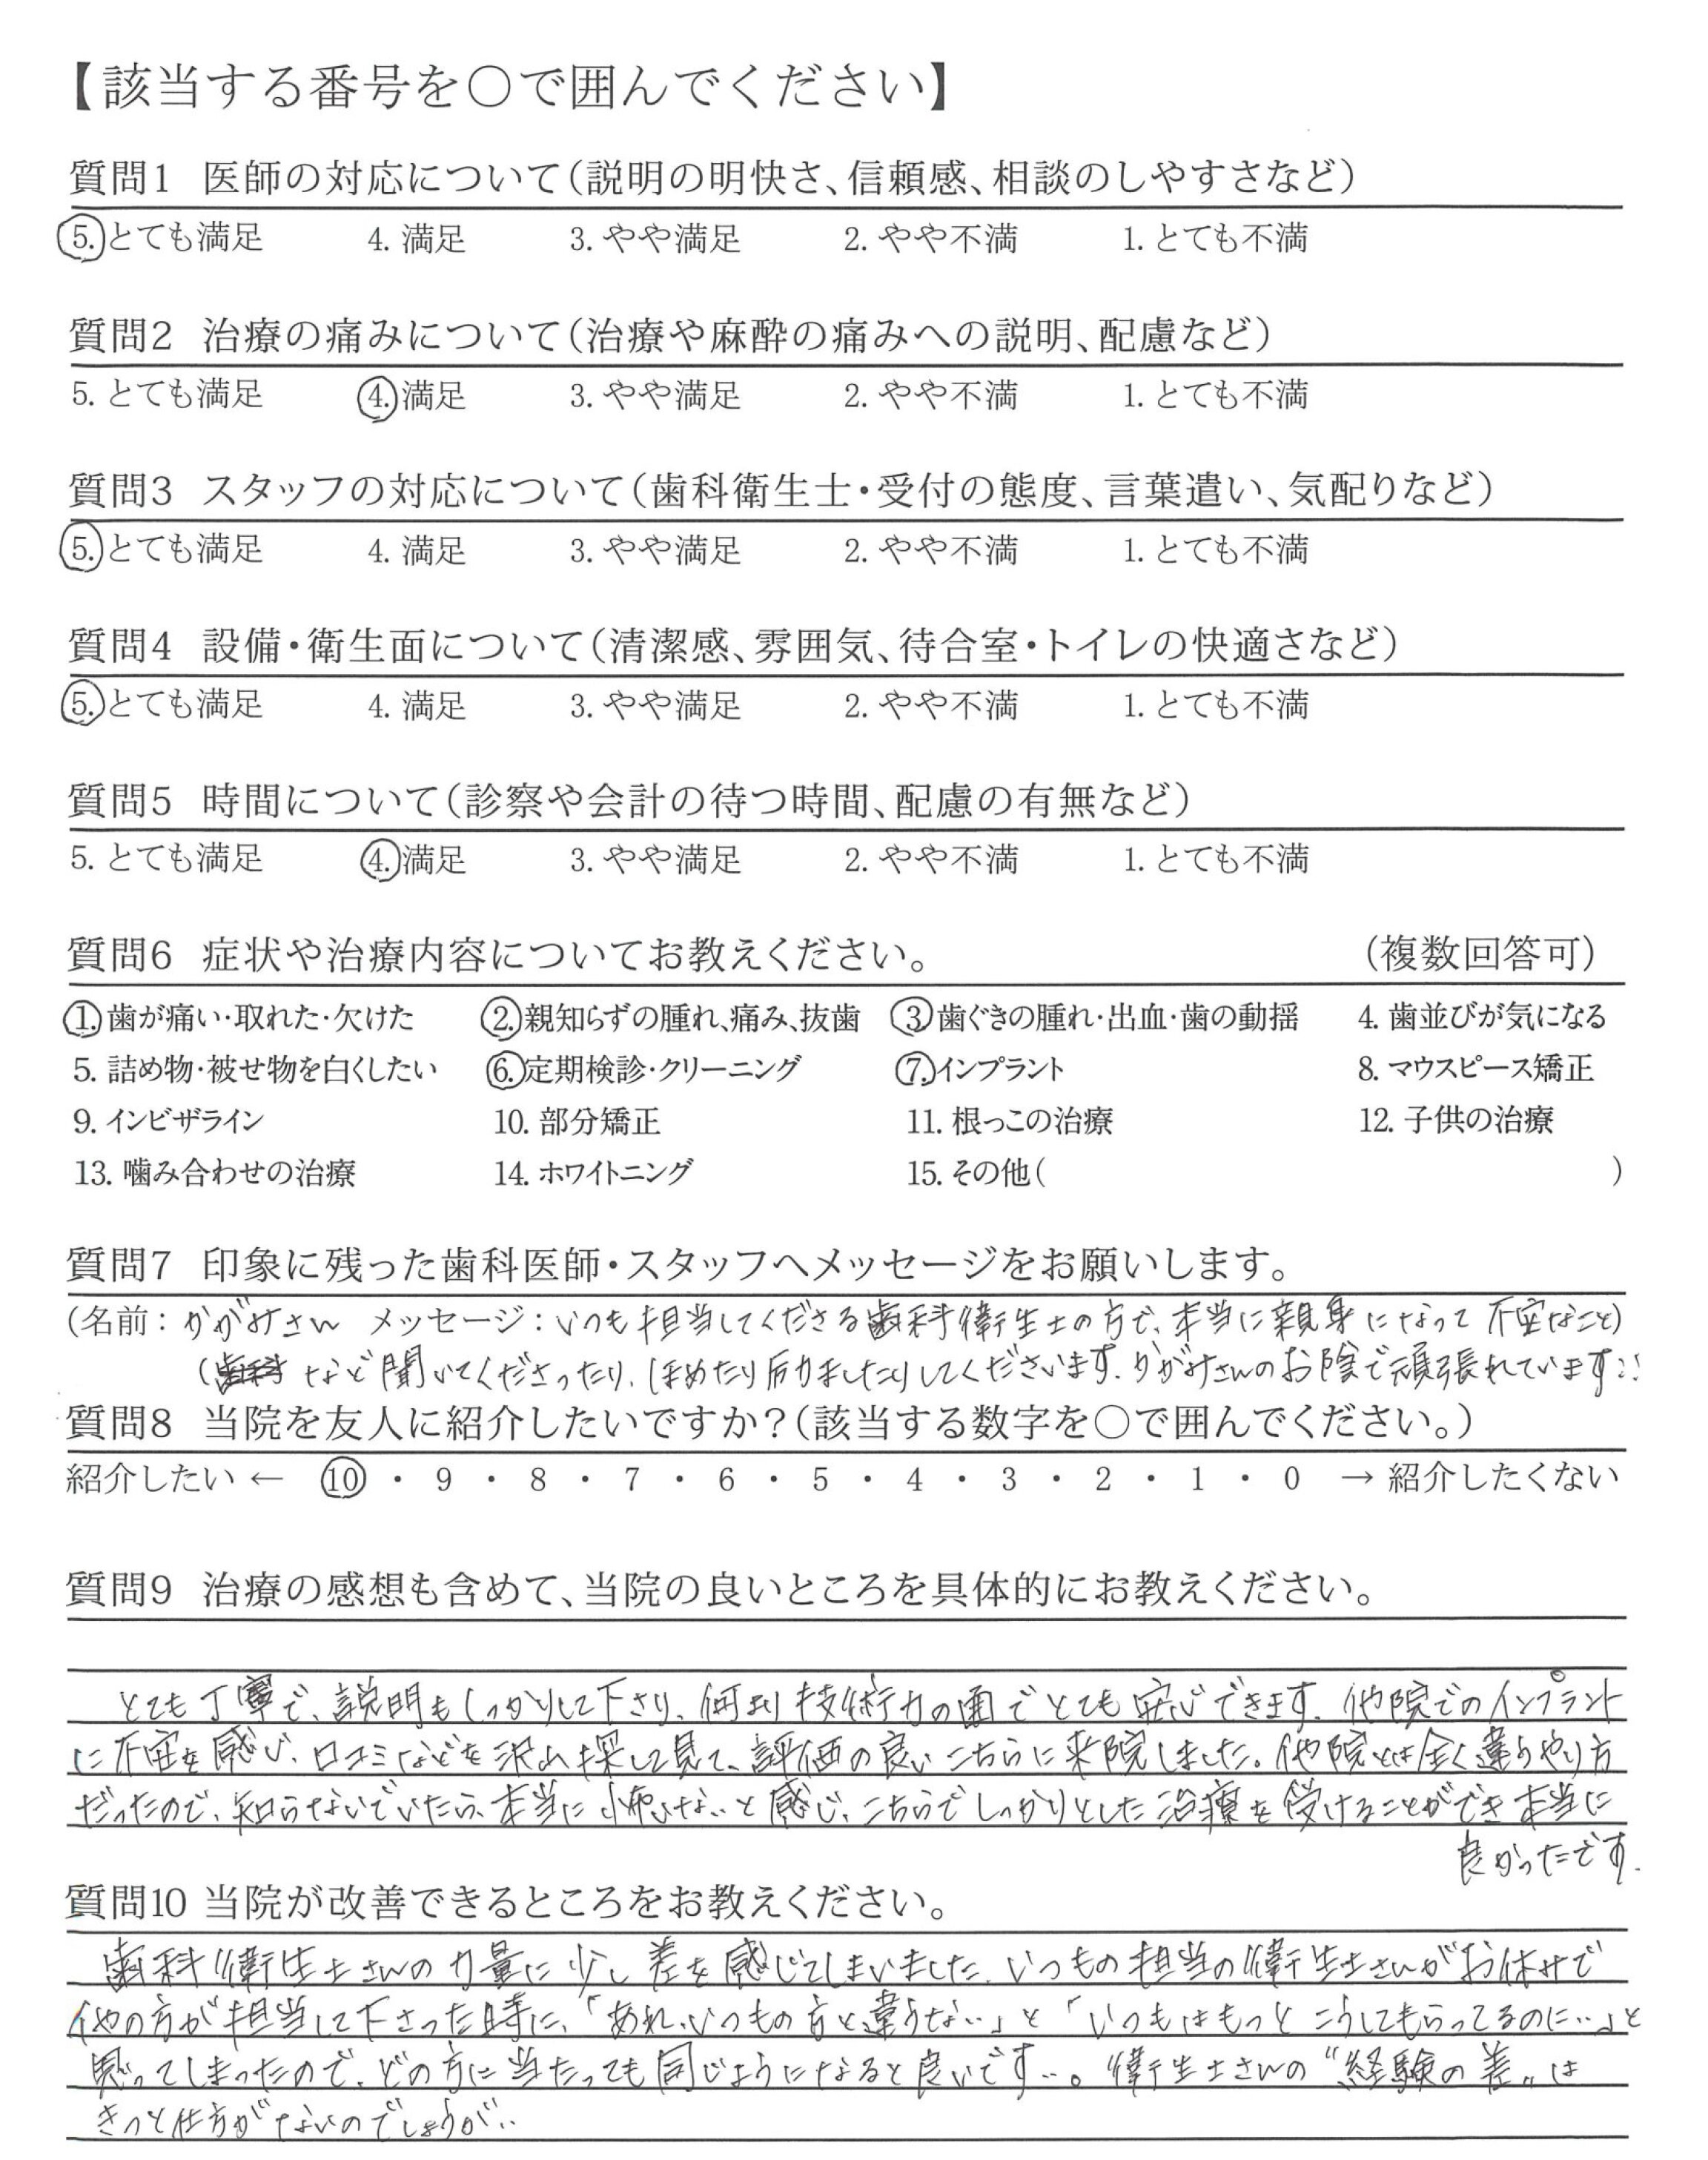 【該当する番号を〇で囲んでください】
質問1 医師の対応について（説明の明快さ、信頼感、相談のしやすさなど）
5. とても満足 4. 満足 3. やや満足 2. やや不満 1. とても不満
質問2 治療の痛みについて（治療や麻酔の痛みへの説明、配慮など）
5. とても満足 4. 満足 3. やや満足 2. やや不満 1. とても不満
質問3 スタッフの対応について（歯科衛生士・受付の態度、言葉遣い、気配りなど）
5. とても満足 4. 満足 3. やや満足 2. やや不満 1. とても不満
質問4 設備・衛生面について（清潔感、雰囲気、待合室・トイレの快適さなど）
5. とても満足 4. 満足 3. やや満足 2. やや不満 1. とても不満
質問5 時間について（診察や会計の待つ時間、配慮の有無など）
5. とても満足 4. 満足 3. やや満足 2. やや不満 1. とても不満
質問6 症状や治療内容についてお教えください。 （複数回答可）
1. 歯が痛い・取れた・欠けた 2. 親知らずの腫れ、痛み、抜歯 3. 歯ぐきの腫れ・出血・歯の動揺 4. 歯並びが気になる
5. 詰め物・被せ物を白くしたい 6. 定期検診・クリーニング 7. インプラント 8. マウスピース矯正
9. インビザライン 10. 部分矯正 11. 根っこの治療 12. 子供の治療
13. 噛み合わせの治療 14. ホワイトニング 15. その他（ ）
質問7 印象に残った歯科医師・スタッフへメッセージをお願いします。
（名前：かがみさん メッセージ：いつも担当してくださる歯科衛生士の方で、本当に親身になって不安なこと）
（など聞いてくださったり、ほめたり励ましたりしてくださいます。かがみさんのお陰で頑張れています:)
質問8 当院を友人に紹介したいですか？（該当する数字を〇で囲んでください。）
紹介したい ← 10 ・ 9 ・ 8 ・ 7 ・ 6 ・ 5 ・ 4 ・ 3 ・ 2 ・ 1 ・ 0 → 紹介したくない
質問9 治療の感想も含めて、当院の良いところを具体的にお教えください。
とても丁寧で、説明もしっかりして下さり、何より技術力の面でとても安心できます。他院でのインプラント
に不安を感じ、口コミなどを沢山探して見て、評価の良いこちらに来院しました。他院とは全く違うやり方
だったので、知らないでいたら、本当に怖いな…と感じ、こちらでしっかりとした治療を受けることができ本当に
良かったです。
質問10 当院が改善できるところをお教えください。
歯科衛生士さんの力量に少し差を感じてしまいました。いつもの担当の衛生士さんがお休みで
他の方が担当して下さった時に、「あれ、いつもの方と違うな…」と「いつもはもっとこうしてもらってるのに…」と
思ってしまったので、どの方に当たっても同じようになると良いです…。衛生士さんの“経験の差”は
きっと仕方がないのでしょうが…